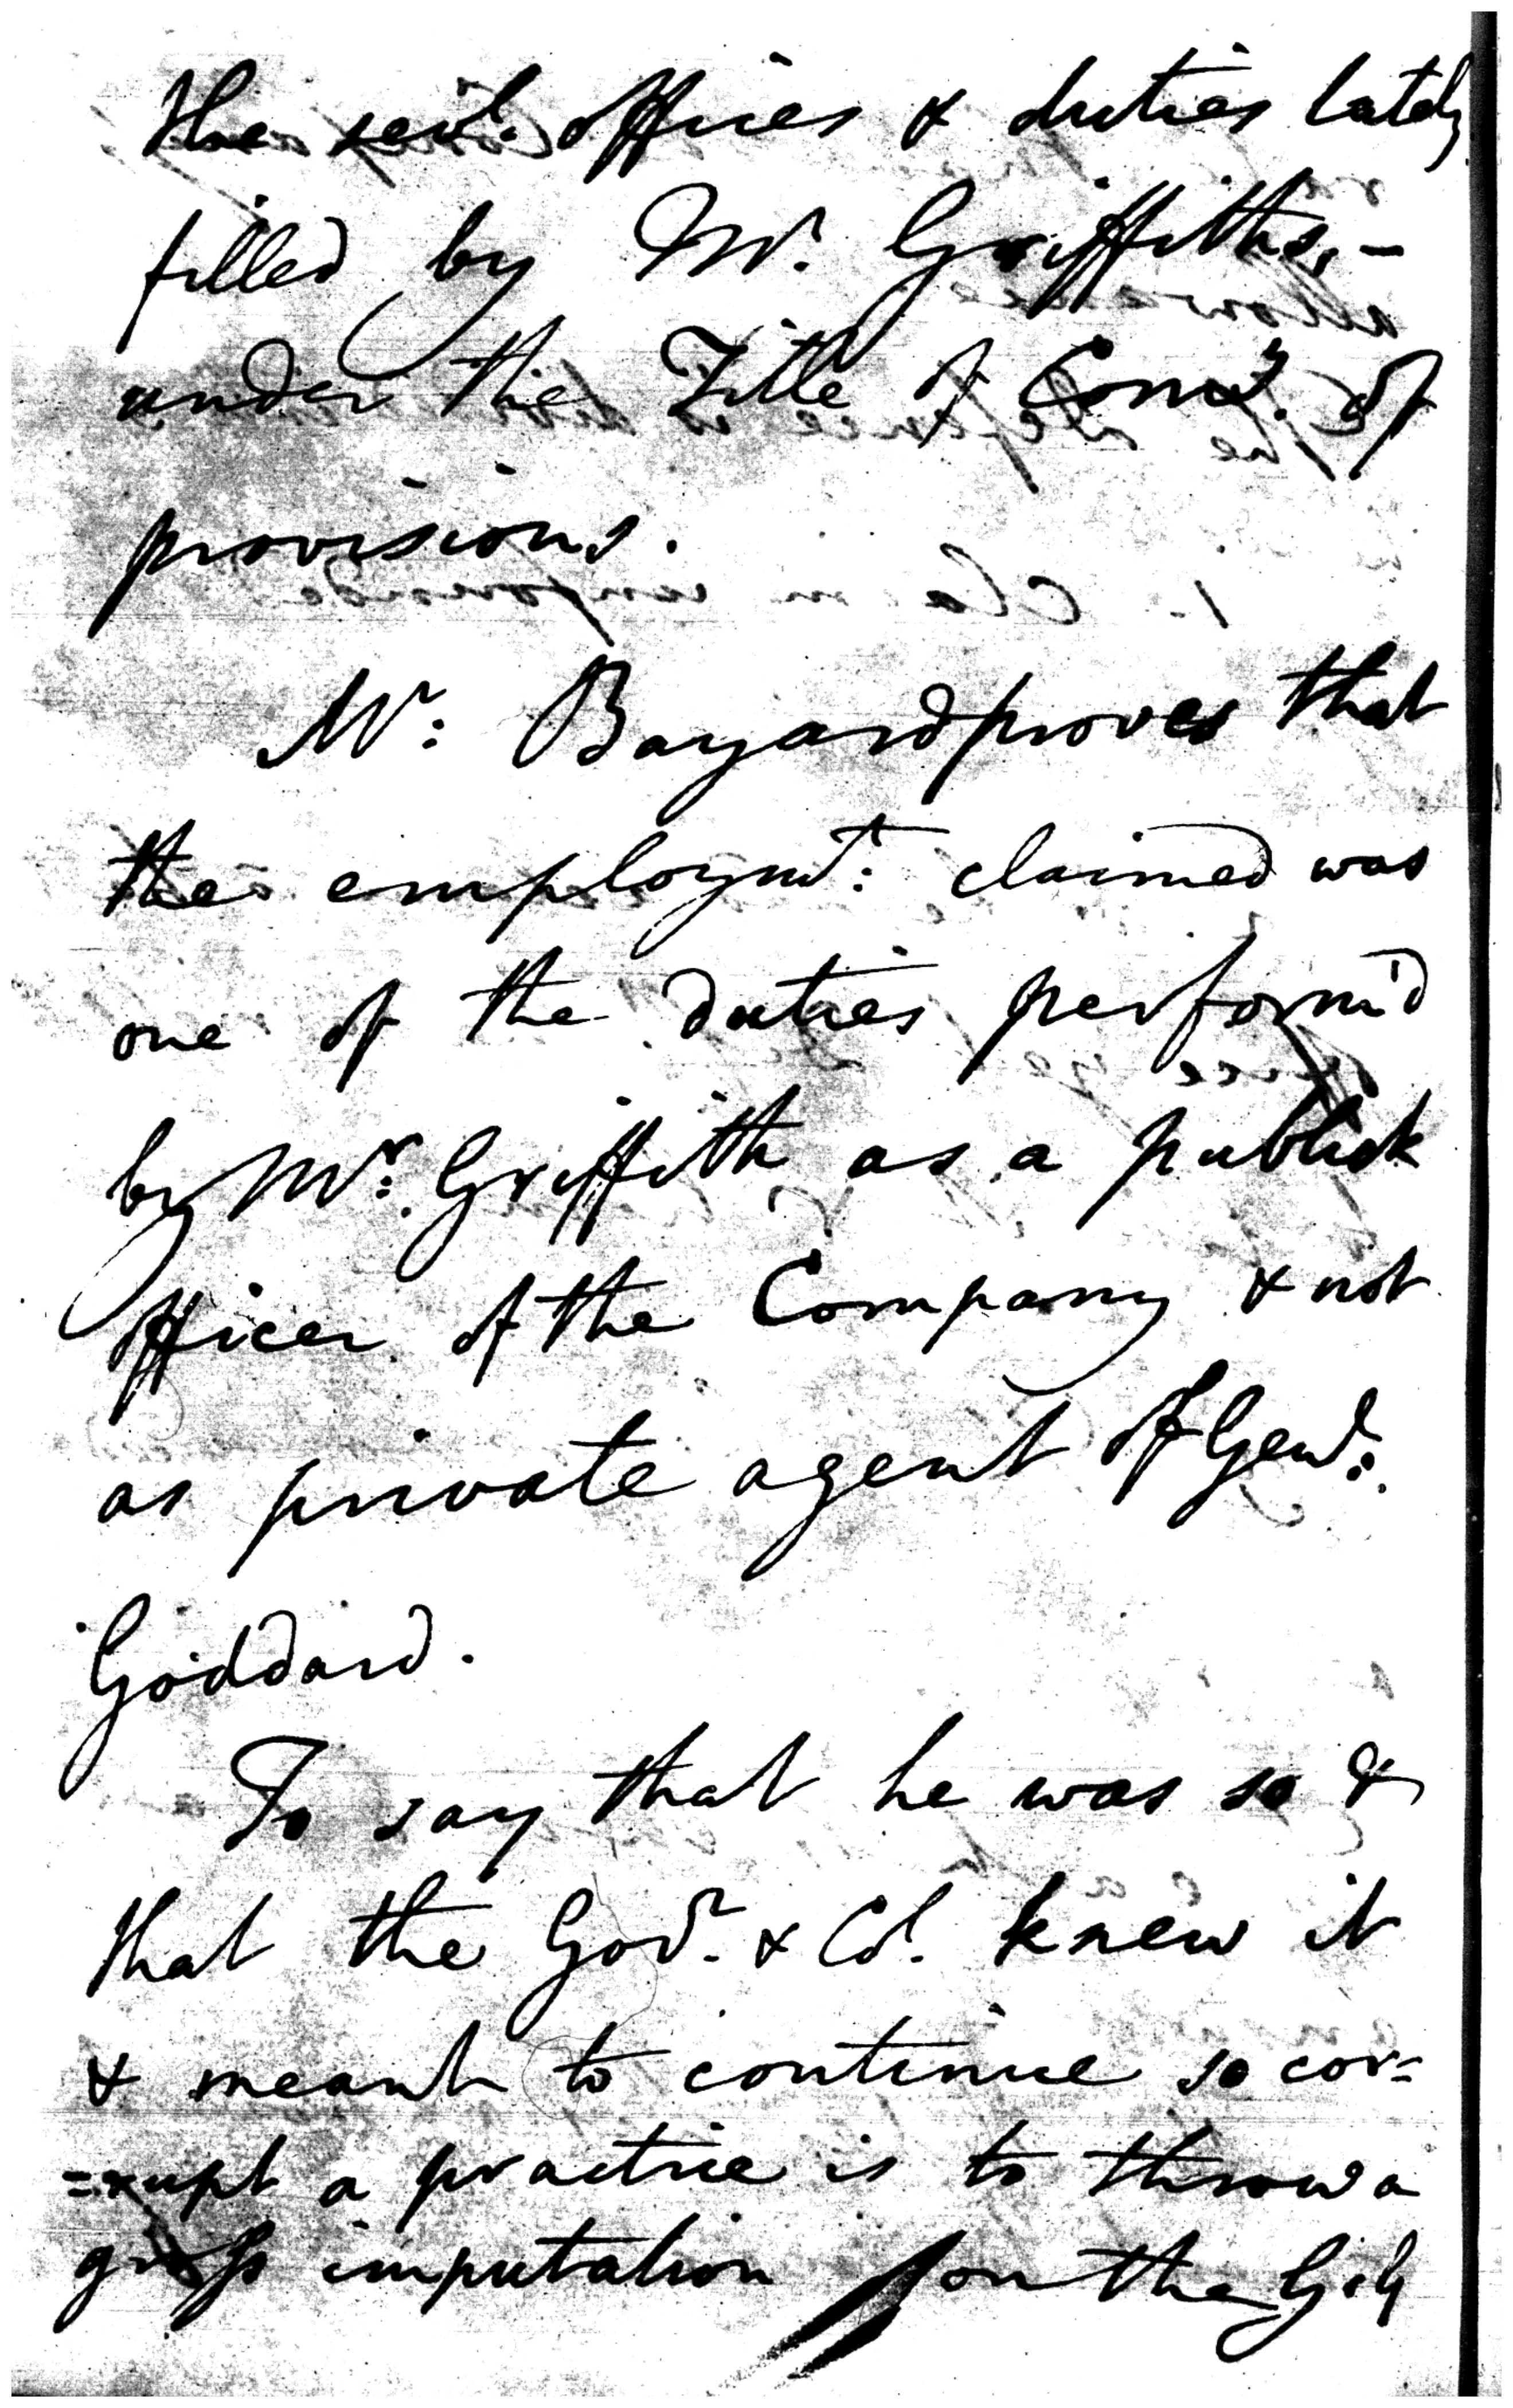 the sevl. offices & duties lately
filled by Mr. Griffiths, -
under the Title of Comy. of
provisions.
Mr: Bayard proves that
the employmt: claimed was
one of the duties perform'd
by Mr: Griffith as a publick
officer of the Company & not
as private agent of Genl:
Goddard.
To say that he was so &
that the Govr. & Cl. knew it
& meant to continue so cor=
=rupt a practice is to throw a
gross imputation on the